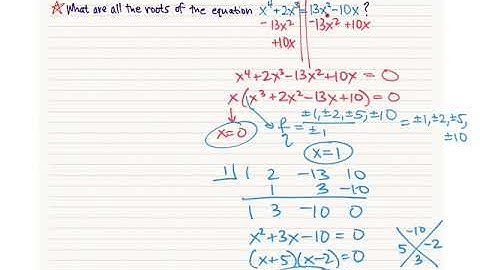 ☆ What are all the roots of the equation x⁴+2x³=13x²-10x?
-13x² -13x²+10x
+10x
x⁴+2x³-13x²+10x = 0
x(x³+2x²-13x+10)=0
x=0
p/q = ±1,±2,±5,±10/±1 = ±1,±2,±5,±10
x=1
1| 1 2 -13 10
1 3 -10
1 3 -10 0
x²+3x-10=0
-10
5 -2
3
(x+5)(x-2)=0